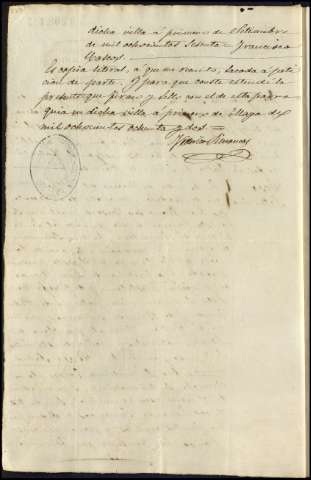 dicha villa á primero de Setiembre
de mil ochocientos sesenta = Francisco
Es copia literal, á que me remito, sacada á peti
cion de parte. Y para que conste estiendo la
presente que firmo y sello con el de esta parro
quia en dicha villa á primero de Mayo de
mil ochocientos ochenta y dos =